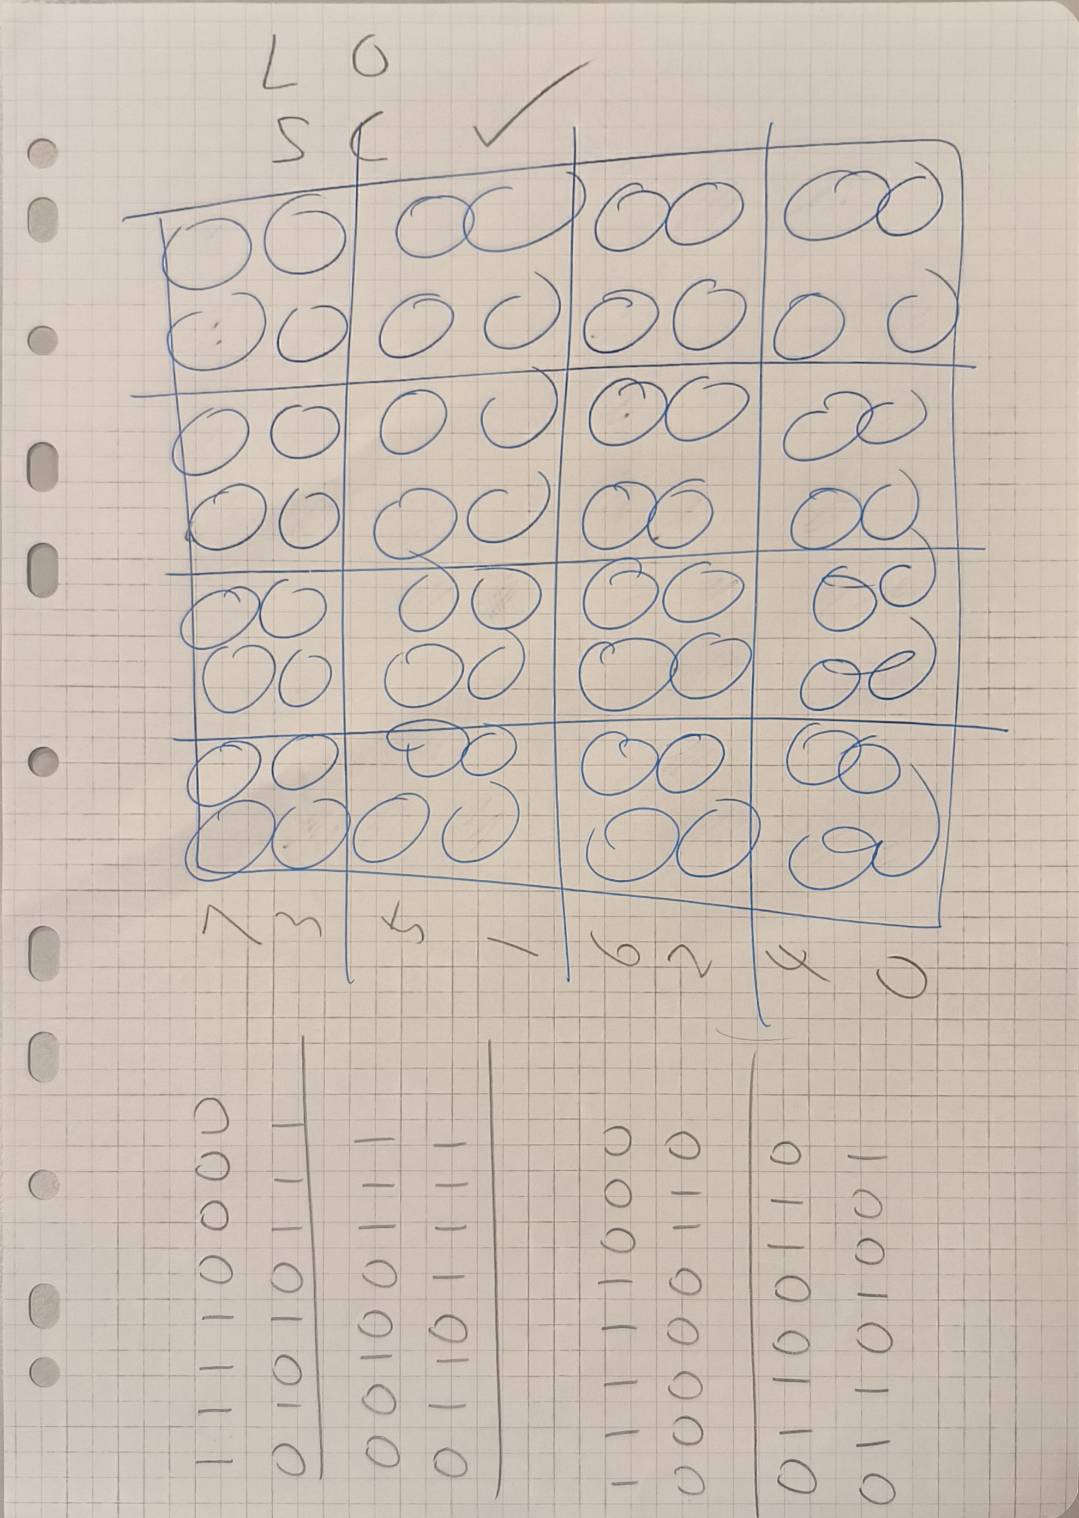 L O
S C ✓
7
3
5
1
6
2
4
0
11110000
01010111
00100111
01101111
11111000
00000110
01100110
01101001